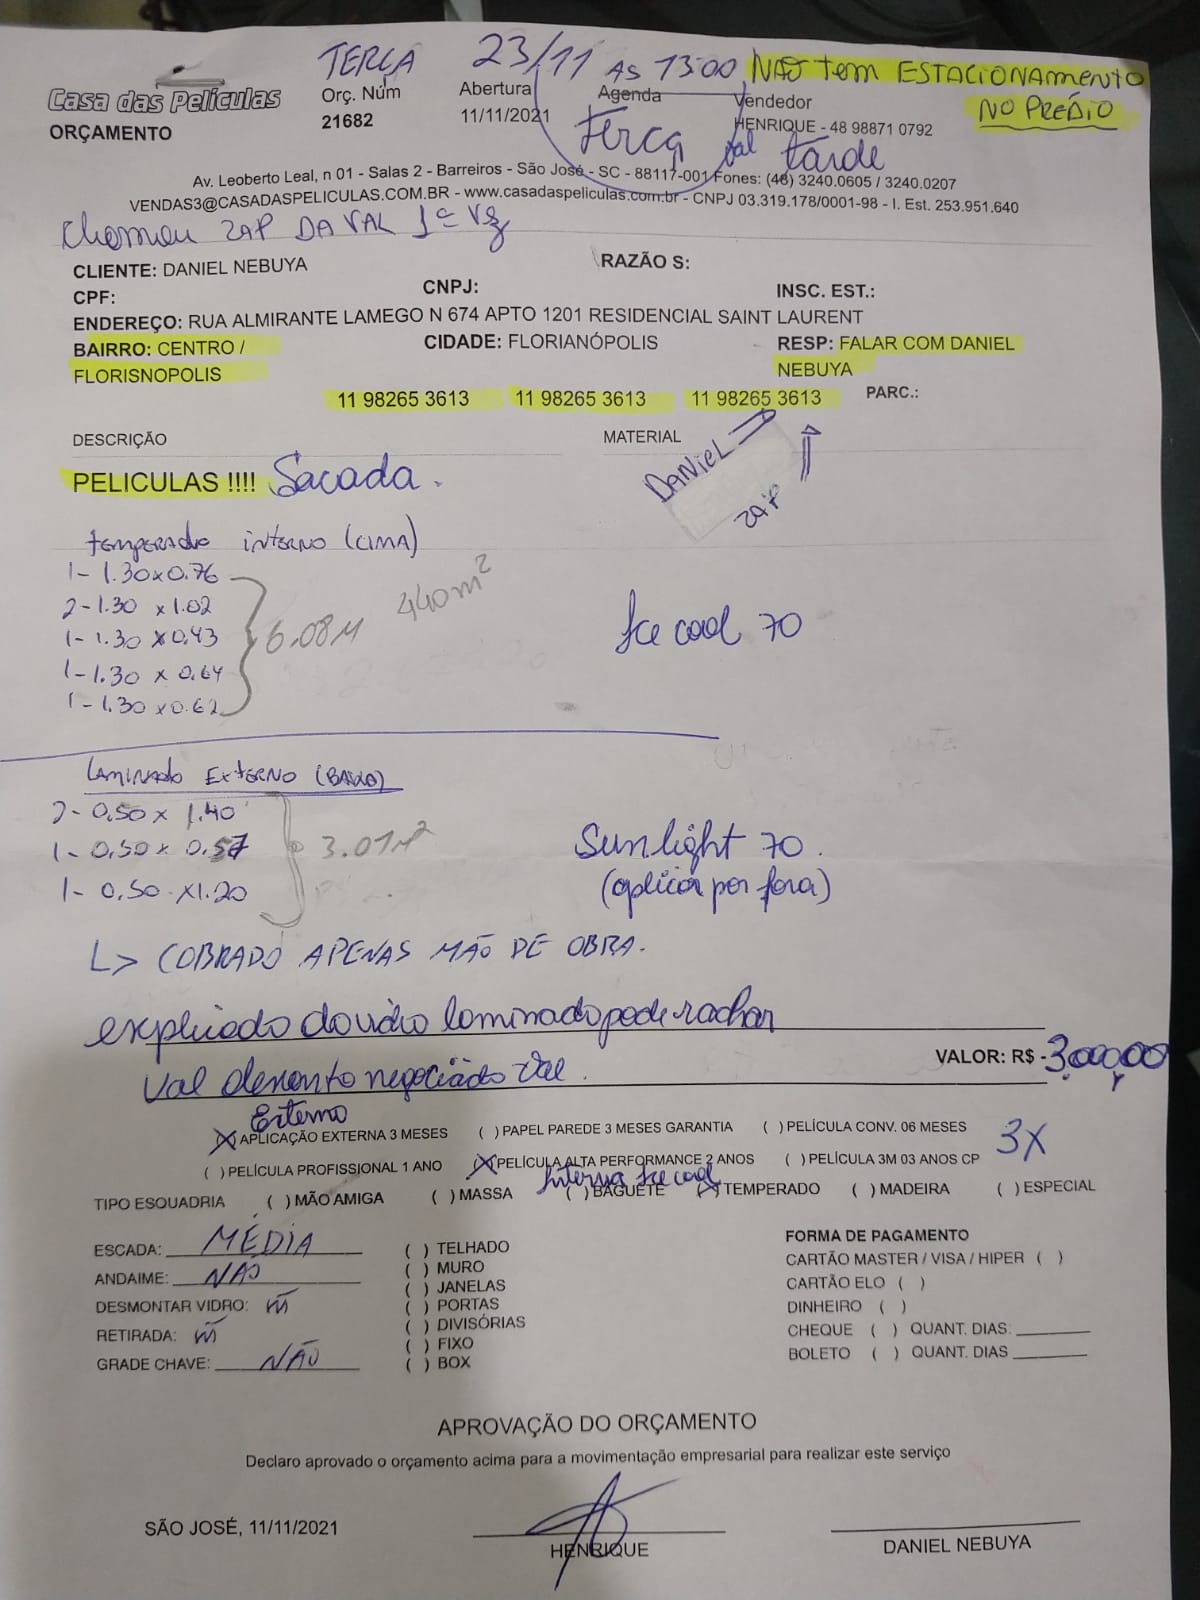 TERÇA 23/11 AS 13:00 NÃO tem ESTACIONAMENTO
NO PRÉDIO
Casa das Películas
ORÇAMENTO
Orç. Núm
21682
Abertura
11/11/2021
Agenda
Terça
Vendedor
HENRIQUE - 48 98871 0792
Val tarde
Av. Leoberto Leal, n 01 - Salas 2 - Barreiros - São José - SC - 88117-001 Fones: (48) 3240.0605 / 3240.0207
VENDAS3@CASADASPELICULAS.COM.BR - www.casadaspeliculas.com.br - CNPJ 03.319.178/0001-98 - I. Est. 253.951.640
Chamou ZAP DA VAL 1ª vez
CLIENTE: DANIEL NEBUYA
RAZÃO S:
CPF:
CNPJ:
INSC. EST.:
ENDEREÇO: RUA ALMIRANTE LAMEGO N 674 APTO 1201 RESIDENCIAL SAINT LAURENT
BAIRRO: CENTRO /
FLORISNOPOLIS
CIDADE: FLORIANÓPOLIS
RESP: FALAR COM DANIEL
NEBUYA
11 98265 3613 11 98265 3613 11 98265 3613 PARC.:
DESCRIÇÃO
MATERIAL
DANIEL
zap
PELICULAS !!!! Sacada.
temperado interno (CIMA)
1- 1.30x0.76
2- 1.30 x1.02
1- 1.30 x0.43
1- 1.30 x 0.64
1- 1.30 x0.62
6.08M
440m²
Ice cool 70
LAMINADO EXTERNO (BAIXO)
2- 0,50 x 1.40
1- 0,50 x 0.57
1- 0,50 x1.20
3.01M²
Sunlight 70.
(aplicar por fora)
L> COBRADO APENAS MÃO DE OBRA.
explicado do vidro laminado pode rachar
VALOR: R$ -3,000,00
Val desconto negociado Val.
Externo
(X) APLICAÇÃO EXTERNA 3 MESES ( ) PAPEL PAREDE 3 MESES GARANTIA ( ) PELÍCULA CONV. 06 MESES
3X
( ) PELÍCULA PROFISSIONAL 1 ANO (X) PELÍCULA ALTA PERFORMANCE 2 ANOS ( ) PELÍCULA 3M 03 ANOS CP
Interna Ice cool
TIPO ESQUADRIA ( ) MÃO AMIGA ( ) MASSA ( ) BAGUETE (X) TEMPERADO ( ) MADEIRA ( ) ESPECIAL
ESCADA: MÉDIA
ANDAIME: NÃO
DESMONTAR VIDRO: Ñ
RETIRADA: Ñ
GRADE CHAVE: NÃO
( ) TELHADO
( ) MURO
( ) JANELAS
( ) PORTAS
( ) DIVISÓRIAS
( ) FIXO
( ) BOX
FORMA DE PAGAMENTO
CARTÃO MASTER / VISA / HIPER ( )
CARTÃO ELO ( )
DINHEIRO ( )
CHEQUE ( ) QUANT. DIAS:
BOLETO ( ) QUANT. DIAS
APROVAÇÃO DO ORÇAMENTO
Declaro aprovado o orçamento acima para a movimentação empresarial para realizar este serviço
SÃO JOSÉ, 11/11/2021
HENRIQUE
DANIEL NEBUYA